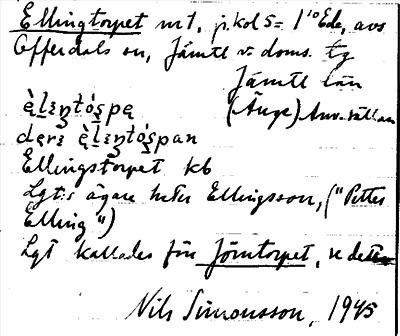 Ellingtorpet nr 1, j. kol 5 = 1 10 Ede, avs
Offerdals sn, Jämtl v. doms. tg
Jämtl län
(Änge) Anv-sättan
Ellingstorpet kb
Lgt:s ägare heter Ellingsson, ("Petter
Elling")
Lgt kallades förr Jörntorpet, se detta
Nils Simonsson, 1945